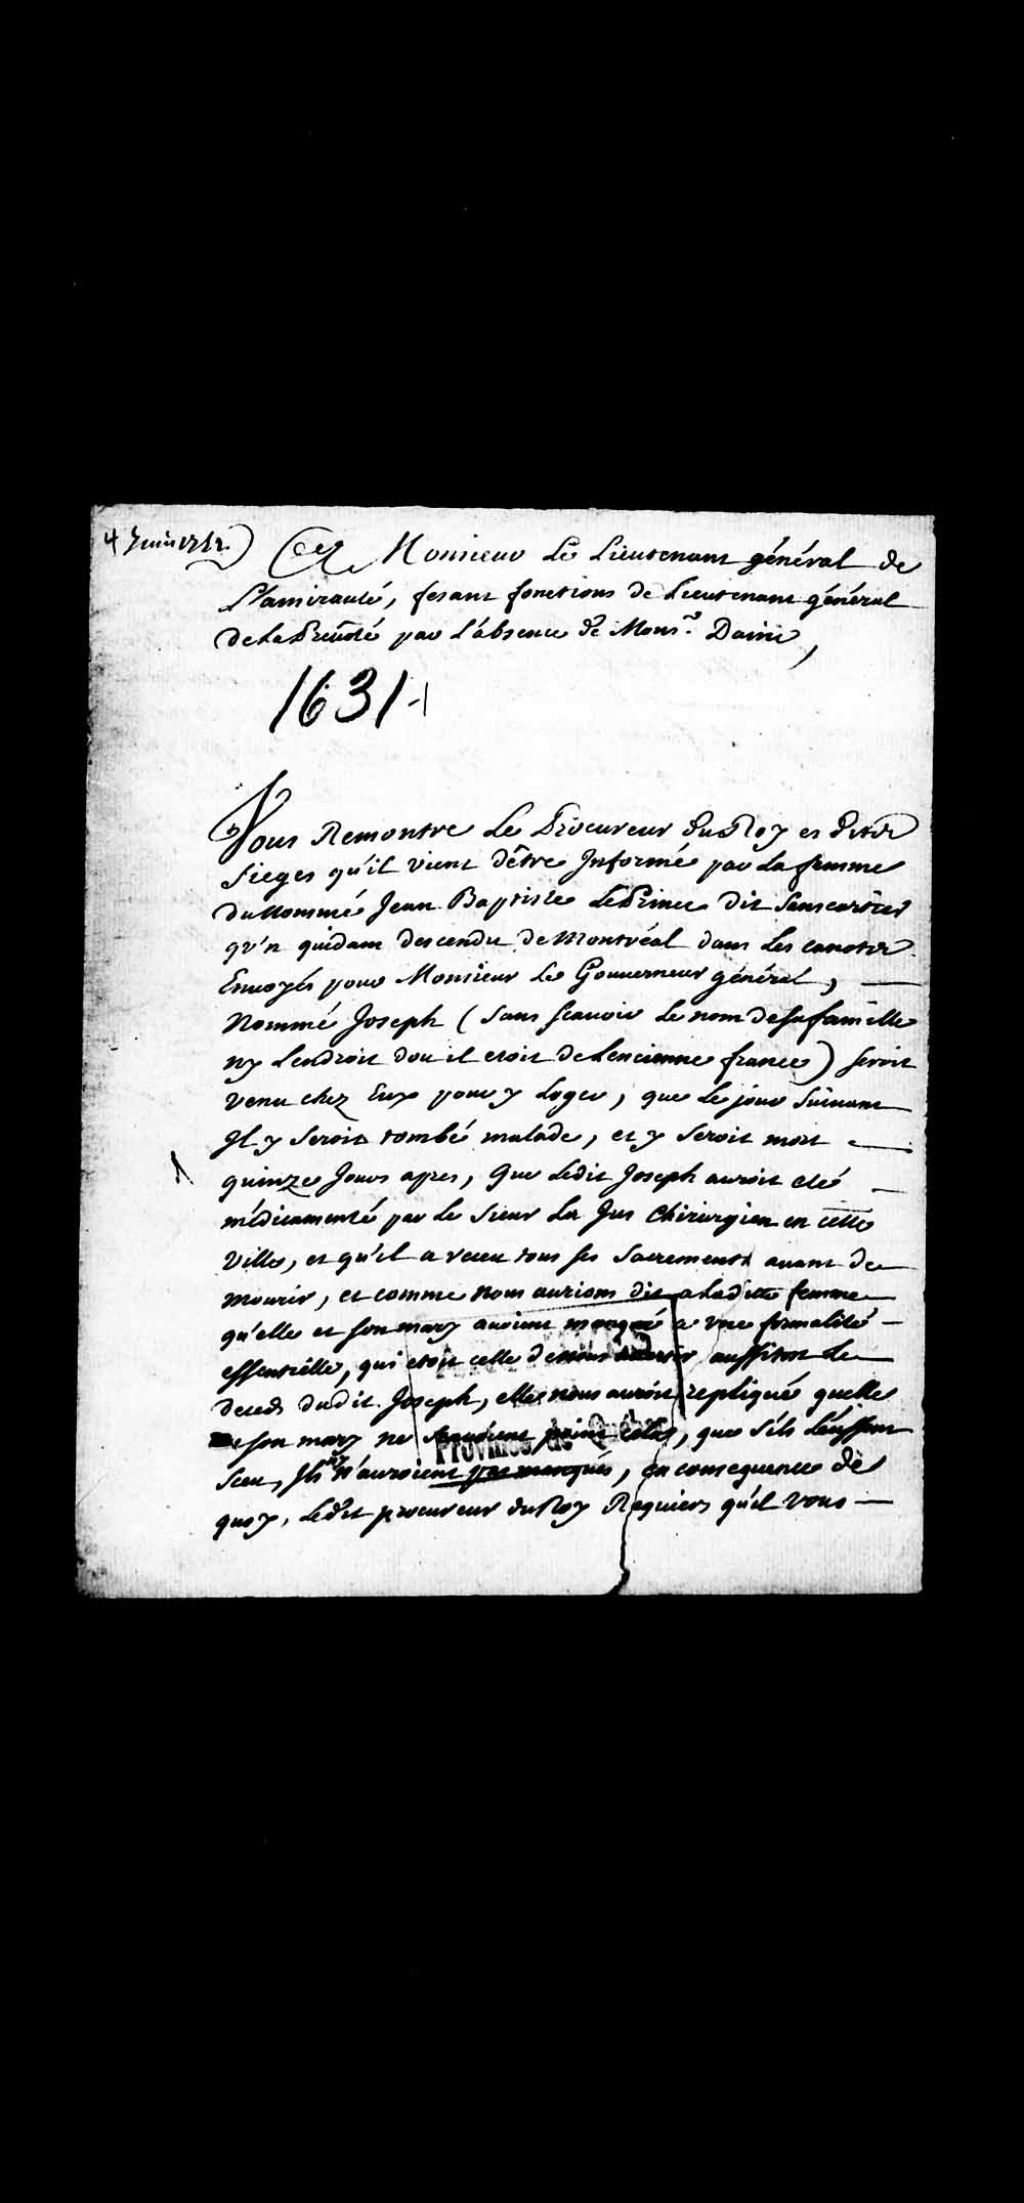 4 Juin 1752
A Monsieur Le Lieutenant général de
L'amirauté, fesant fonctions de Lieutenant général
de La Prevôté par l'absence de Monsr. Daine,
1631
Vous Remontre Le Procureur du Roy es dits
Sieges qu'il vient d'être Informé par La femme
du Nommé Jean Baptiste LePrince dit Sanscartier
qu'n quidam descendu de Montréal dans Les canots
Envoyés pour Monsieur Le Gouverneur général,
Nommé Joseph (Sans Scavoir Le nom de Sa famille
ny Lendroit dou il etoit de Lencienne france) Seroit
Venu chez Eux pour y Loger, que Le jour Suivant
Il y Seroit tombé malade, et y Seroit mort
quinze Jours apres, Que Ledit Joseph auroit eté
médicamenté par Le Sieur La Jus Chirurgien en cette
Ville, et qu'il a receu tous ses Sacrements avant de
Mourir, et comme Nous aurions dit a Ladite femme
qu'elle et son mary avoient manqué a une formalité
essentielle, qui etoit celle de nous avertir aussitost Le
deceds dudit Joseph, elle nous auroit repliqué quelle
et son mary ne Scavoient point cela, que S'ils L'eussent
Sceu, Ils n'auroient pas manqués, en consequence de
quoy, Ledit procureur du Roy Requiers qu'il vous
Province de Québec